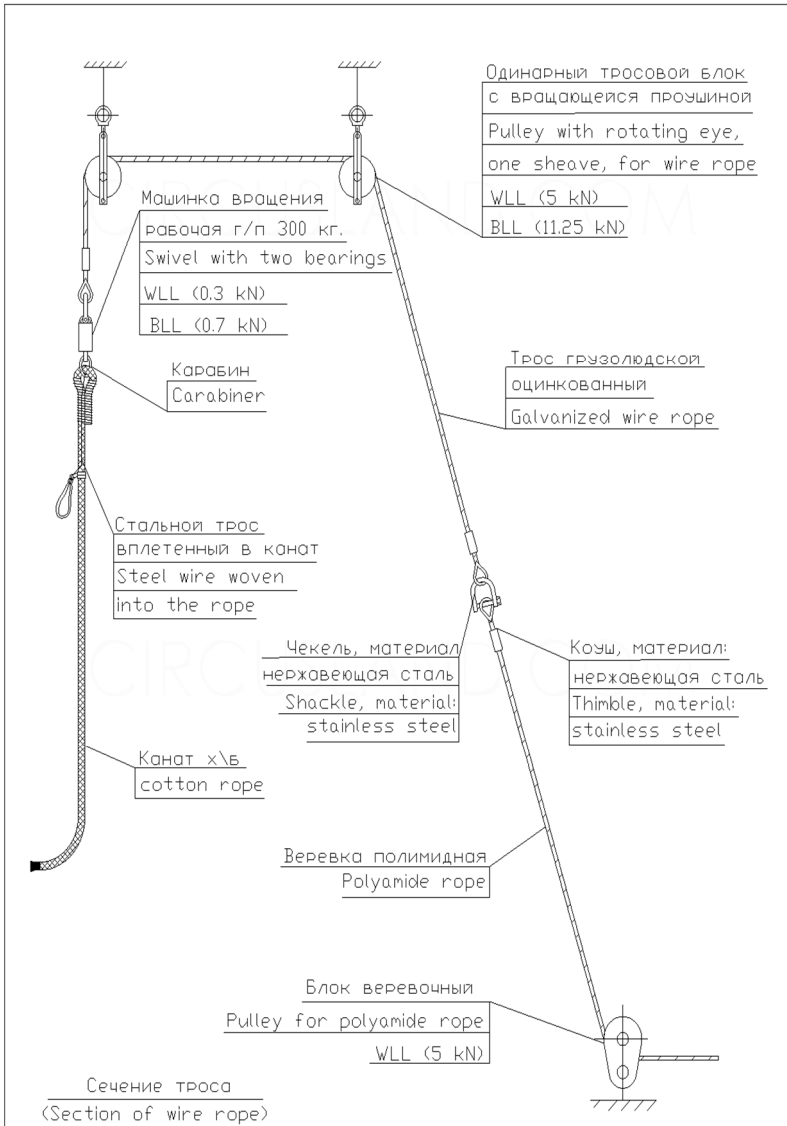 Одинарный тросовой блок
с вращающейся проушиной
Pulley with rotating eye,
one sheave, for wire rope
WLL (5 kN)
BLL (11.25 kN)
CIRCUSLAND.COM
Машинка вращения
рабочая г/п 300 кг.
Swivel with two bearings
WLL (0.3 kN)
BLL (0.7 kN)
Карабин
Carabiner
Трос грузолюдской
оцинкованный
Galvanized wire rope
Стальной трос
вплетенный в канат
Steel wire woven
into the rope
Чекель, материал
нержавеющая сталь
Shackle, material:
stainless steel
Коуш, материал:
нержавеющая сталь
Thimble, material:
stainless steel
CIRCUSLAND.COM
Канат х\б
cotton rope
Веревка полимидная
Polyamide rope
Блок веревочный
Pulley for polyamide rope
WLL (5 kN)
Сечение троса
(Section of wire rope)